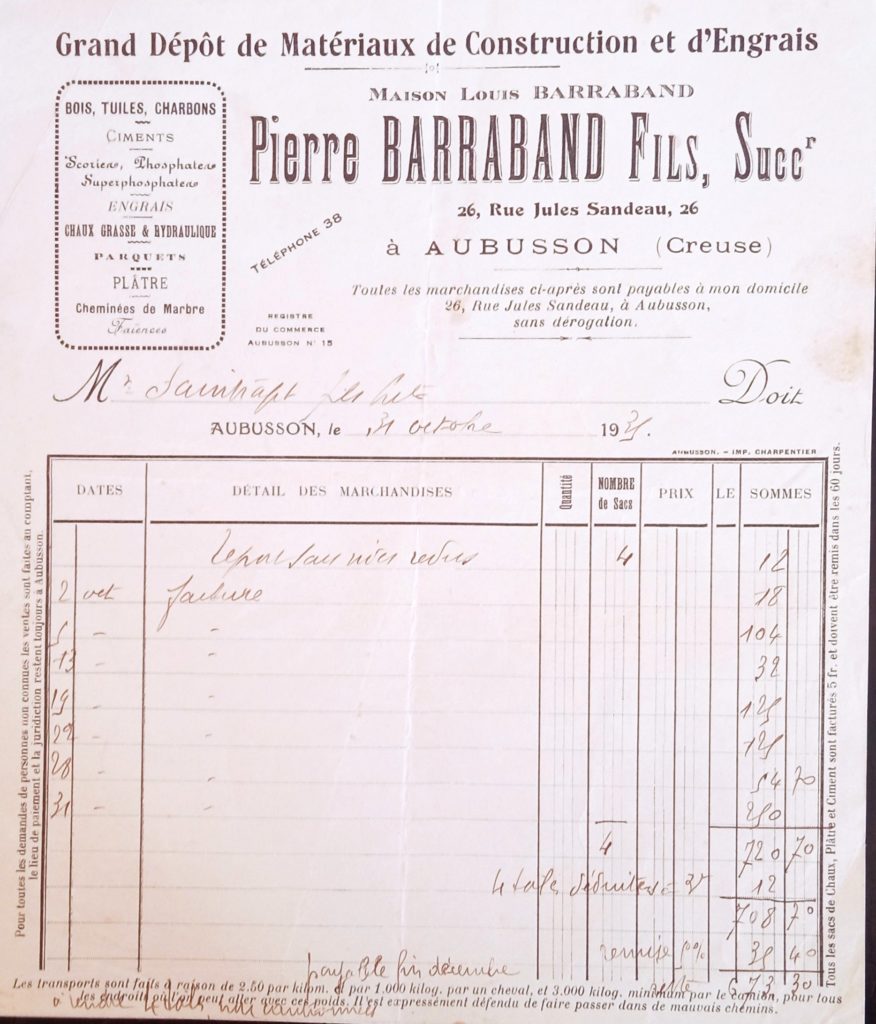 Grand Dépôt de Matériaux de Construction et d'Engrais
BOIS, TUILES, CHARBONS
CIMENTS
Scories, Phosphates
Superphosphates
ENGRAIS
CHAUX GRASSE & HYDRAULIQUE
PARQUETS
PLÂTRE
Cheminées de Marbre
Faïences
MAISON LOUIS BARRABAND
Pierre BARRABAND FILS, Succr
26, Rue Jules Sandeau, 26
TÉLÉPHONE 38
à AUBUSSON (Creuse)
REGISTRE
DU COMMERCE
AUBUSSON N° 15
Toutes les marchandises ci-après sont payables à mon domicile
26, Rue Jules Sandeau, à Aubusson,
sans dérogation.
Mr Doit
AUBUSSON, le 31 octobre 1935.
AUBUSSON. - IMP. CHARPENTIER
DATES DÉTAIL DES MARCHANDISES Quantité NOMBRE de Sacs PRIX LE SOMMES
4 12
2 oct facture 18
5 - - 104
13 - - 32
19 - - 125
22 - - 125
28 - - 54 70
31 - - 250
4 720 70
4 déduites 12
708 70
remise 5% 35 40
payable fin décembre
673 30
Les transports sont faits à raison de 2.50 par kilom. et par 1.000 kilog. par un cheval, et 3.000 kilog. minimum par le camion, pour tous
les endroits où l'on peut aller avec ces poids. Il est expressément défendu de faire passer dans de mauvais chemins.
Pour toutes les demandes de personnes non connues les ventes sont faites au comptant,
le lieu de paiement et la juridiction restent toujours à Aubusson.
Tous les sacs de Chaux, Plâtre et Ciment sont facturés 5 fr. et doivent être remis dans les 60 jours.